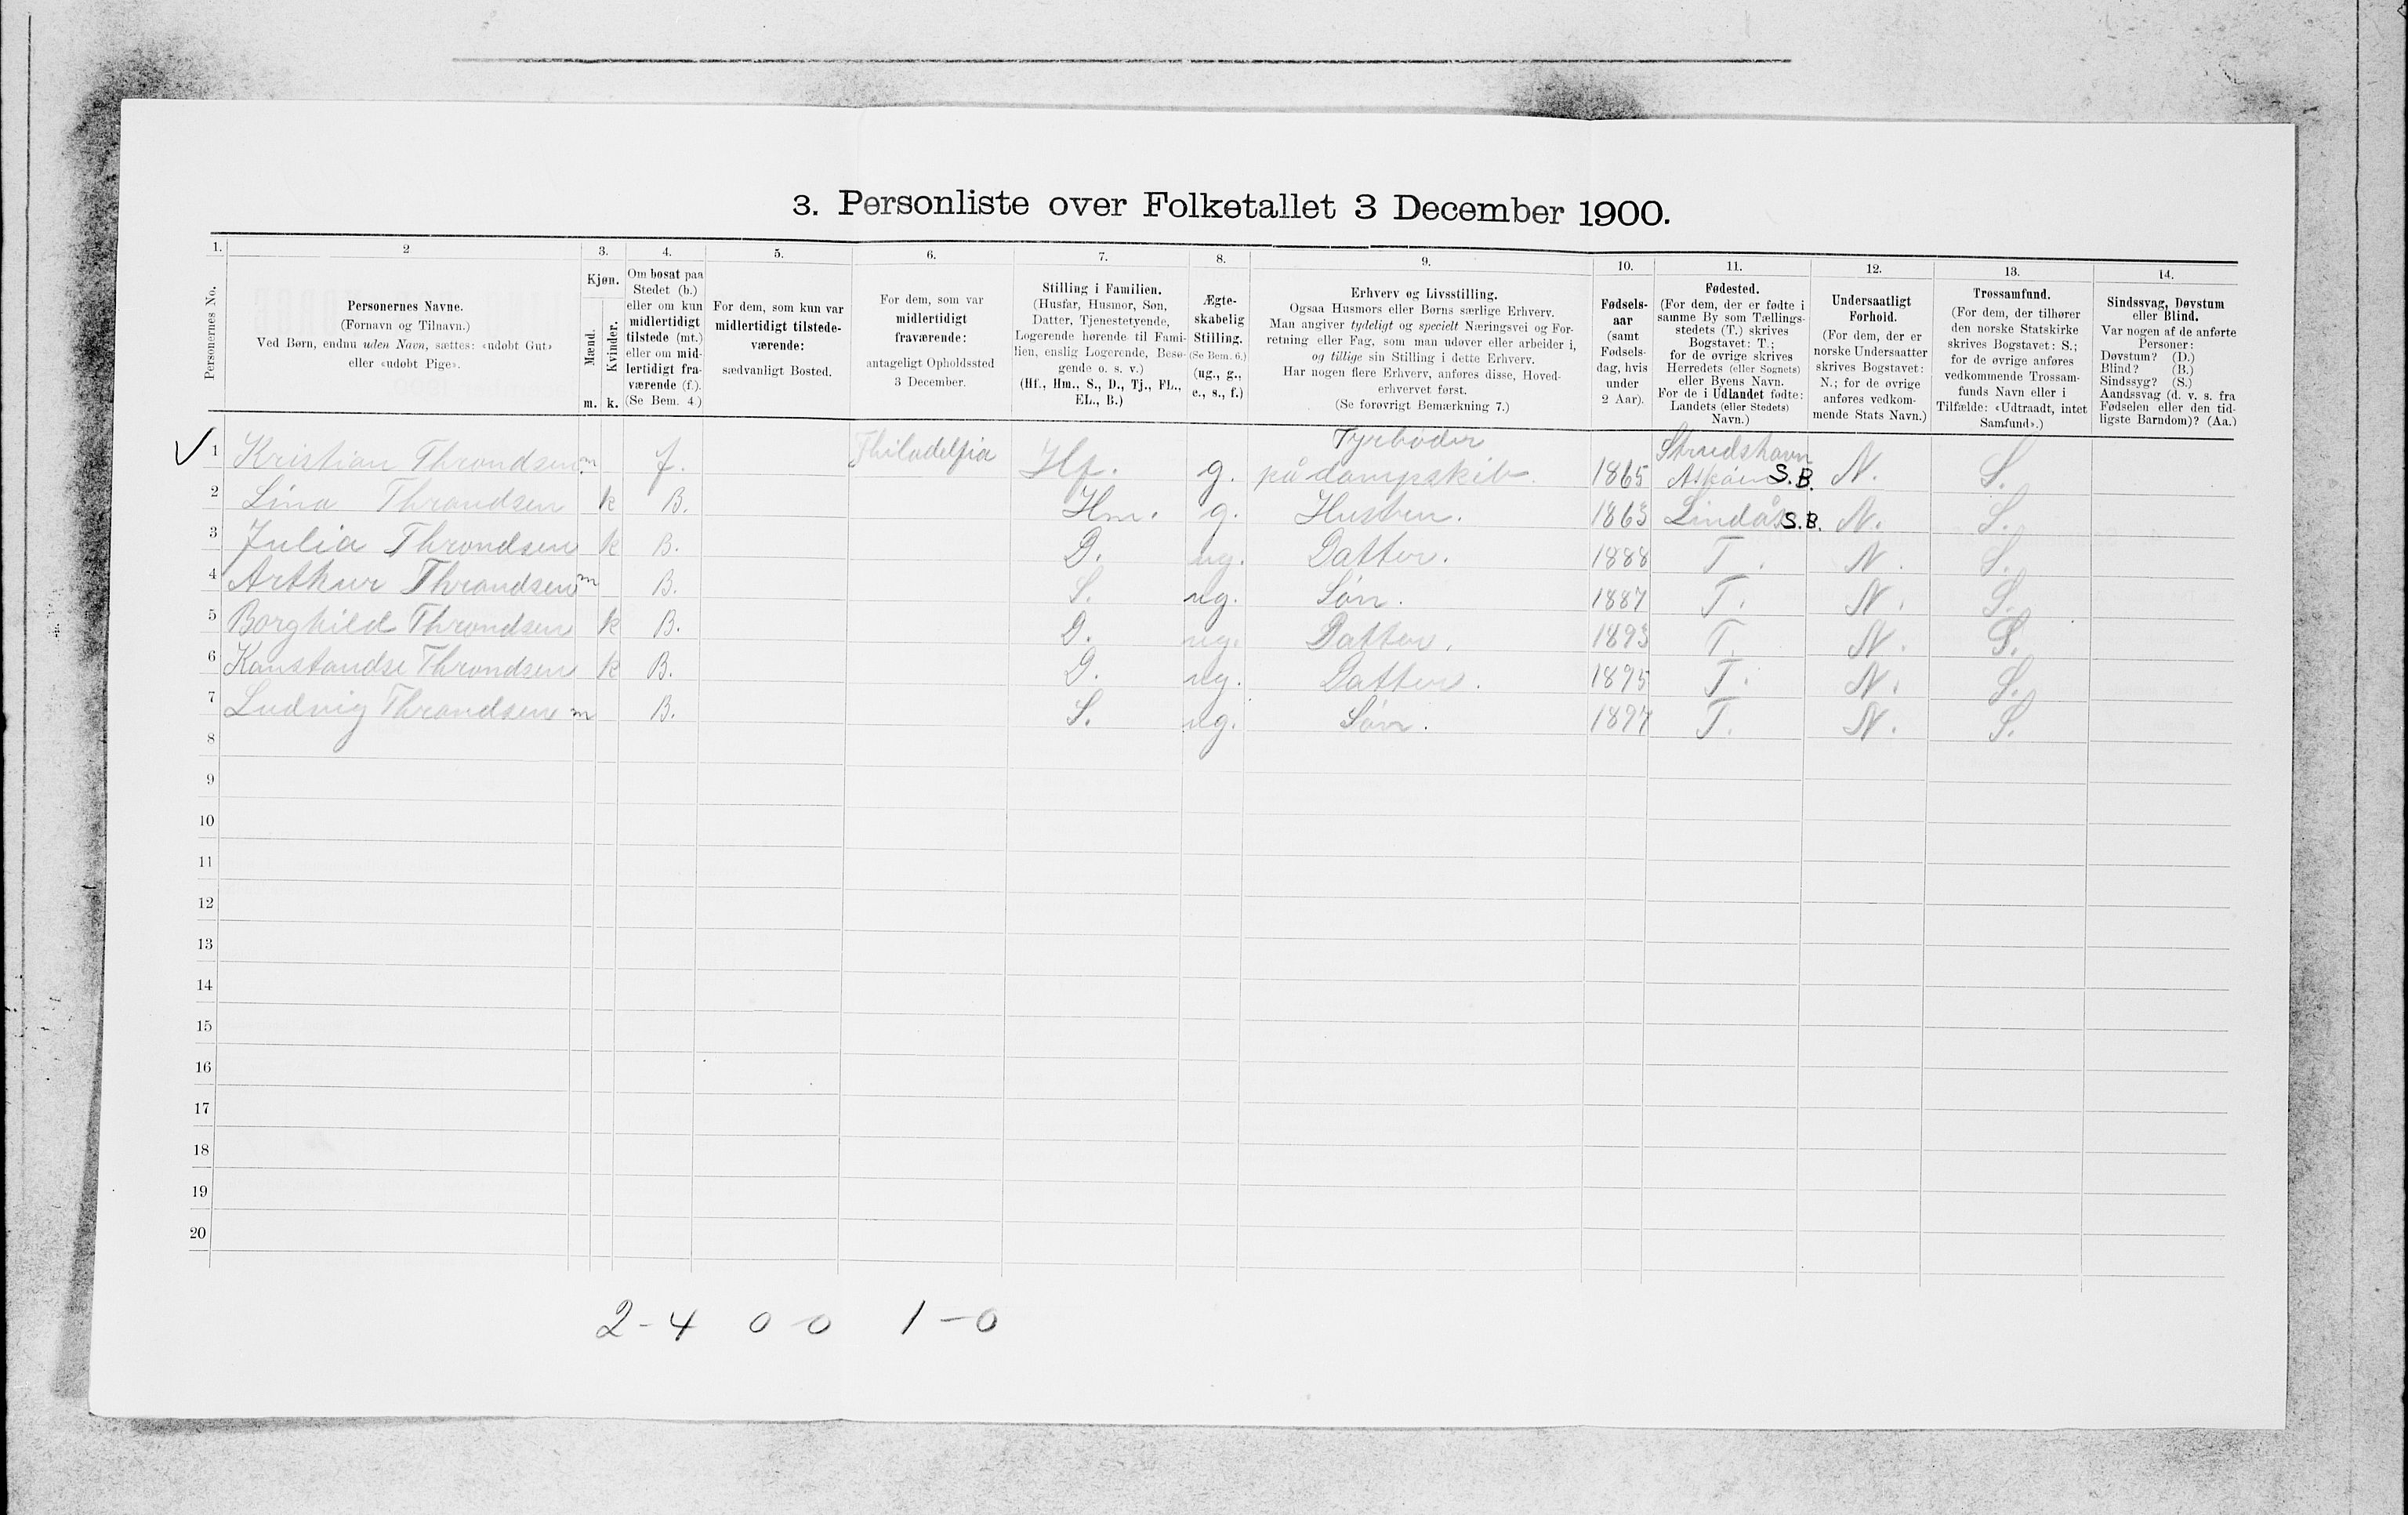 3. Personliste over Folketallet 3 December 1900.
1. 2 3. 4. 5. 6. 7. 8. 9. 10. 11. 12. 13. 14.
Personernes No.
Personernes Navne.
(Fornavn og Tilnavn.)
Ved Børn, endnu uden Navn, sættes: «udøbt Gut»
eller «udøbt Pige».
Kjøn.
Mænd.
Kvinder.
m. k.
Om bosat paa
Stedet (b.)
eller om kun
midlertidigt
tilstede (mt.)
eller om mid-
lertidigt fra-
værende (f.).
(Se Bem. 4.)
For dem, som kun var
midlertidigt tilstede-
værende:
sædvanligt Bosted.
For dem, som var
midlertidigt
fraværende:
antageligt Opholdssted
3 December.
Stilling i Familien.
(Husfar, Husmor, Søn,
Datter, Tjenestetyende,
Logerende hørende til Fami-
lien, enslig Logerende, Besø-
gende o. s. v.)
(Hf., Hm., S., D., Tj., FL.,
EL., B.)
Ægte-
skabelig
Stilling.
(Se Bem. 6.)
(ug., g.,
e., s., f.)
Erhverv og Livsstilling.
Ogsaa Husmors eller Børns særlige Erhverv.
Man angiver tydeligt og specielt Næringsvei og For-
retning eller Fag, som man udøver eller arbeider i,
og tillige sin Stilling i dette Erhverv.
Har nogen flere Erhverv, anføres disse, Hoved-
erhvervet først.
(Se forøvrigt Bemærkning 7.)
Fødsels-
aar
(samt
Fødsels-
dag, hvis
under
2 Aar).
Fødested.
(For dem, der er fødte i
samme By som Tællings-
stedets (T.) skrives
Bogstavet: T.;
for de øvrige skrives
Herredets (eller Sognets)
eller Byens Navn.
For de i Udlandet fødte:
Landets (eller Stedets)
Navn.)
Undersaatligt
Forhold.
(For dem, der er
norske Undersaatter
skrives Bogstavet:
N.; for de øvrige
anføres vedkom-
mende Stats Navn.)
Trossamfund.
(For dem, der tilhører
den norske Statskirke
skrives Bogstavet: S.;
for de øvrige anføres
vedkommende Trossam-
funds Navn eller i
Tilfælde: «Udtraadt, intet
Samfund».)
Sindssvag, Døvstum
eller Blind.
Var nogen af de anførte
Personer:
Døvstum? (D.)
Blind? (B.)
Sindssyg? (S.)
Aandssvag (d. v. s. fra
Fødselen eller den tid-
ligste Barndom)? (Aa.)
Fyrbøder Strudshavn
1 Kristian Throndsen m f. Philadelfia Hf. g. på dampskib. 1865 Askøen S.B. N. S.
2 Lina Throndsen k B. Hm. g. Hustru. 1863 Lindås S.B. N. S.
3 Julia Throndsen k B. D. ug. Datter. 1888 T. N. S.
4 Arthur Throndsen m B. S. ug. Søn. 1887 T. N. S.
5 Borghild Throndsen k B. D. ug. Datter. 1893 T. N. S.
6 Konstandse Throndsen k B. D. ug. Datter. 1895 T. N. S.
7 Ludvig Throndsen m B. S. ug. Søn. 1897 T. N. S.
8
9
10
11
12
13
14
15
16
17
18
19
20
2-4 0-0 1-0